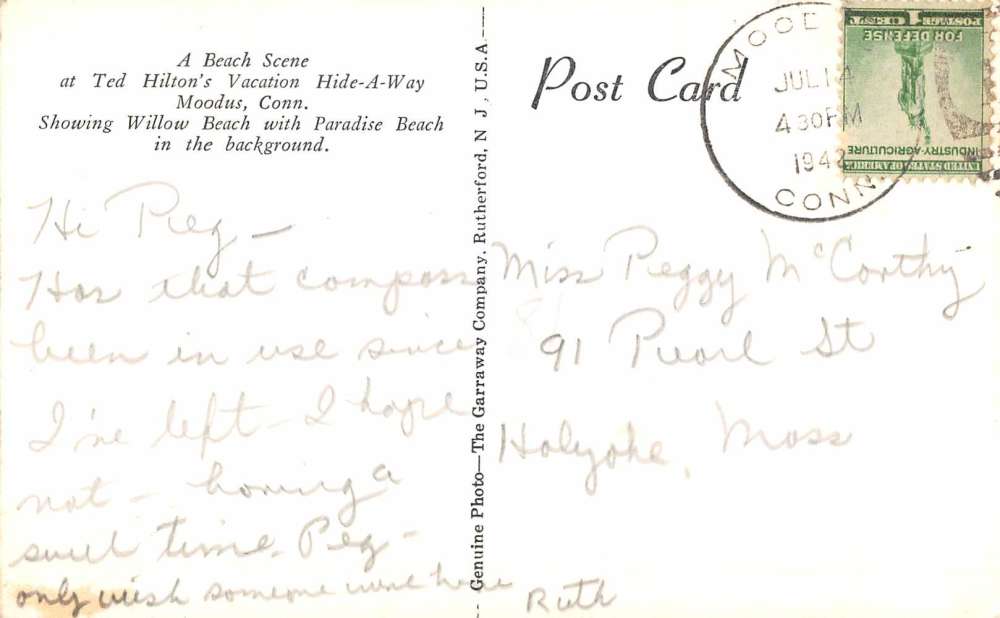 A Beach Scene
at Ted Hilton's Vacation Hide-A-Way
Moodus, Conn.
Showing Willow Beach with Paradise Beach
in the background.
Hi Peg —
Has that compass
been in use since
I've left - I hope
not - having a
swell time. Peg -
only wish someone were here
Ruth
Genuine Photo—The Garraway Company, Rutherford, N J, U.S.A.
Post Card
MOOD
JUL 14
4 30 PM
1942
CONN.
1 CENT 1
POSTAGE
FOR DEFENSE
INDUSTRY-AGRICULTURE
UNITED STATES OF AMERICA
Miss Peggy McCarthy
91 Pearl St
Holyoke, Mass